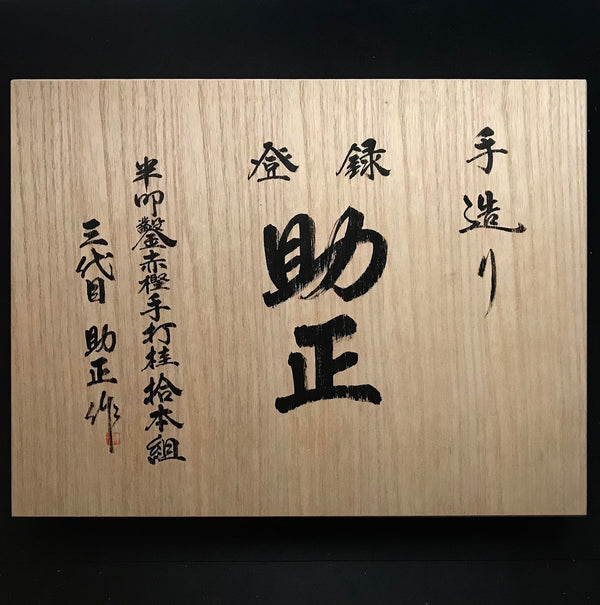 手造り
登録
助正
半叩鑿赤樫手打桂拾本組
三代目 助正作